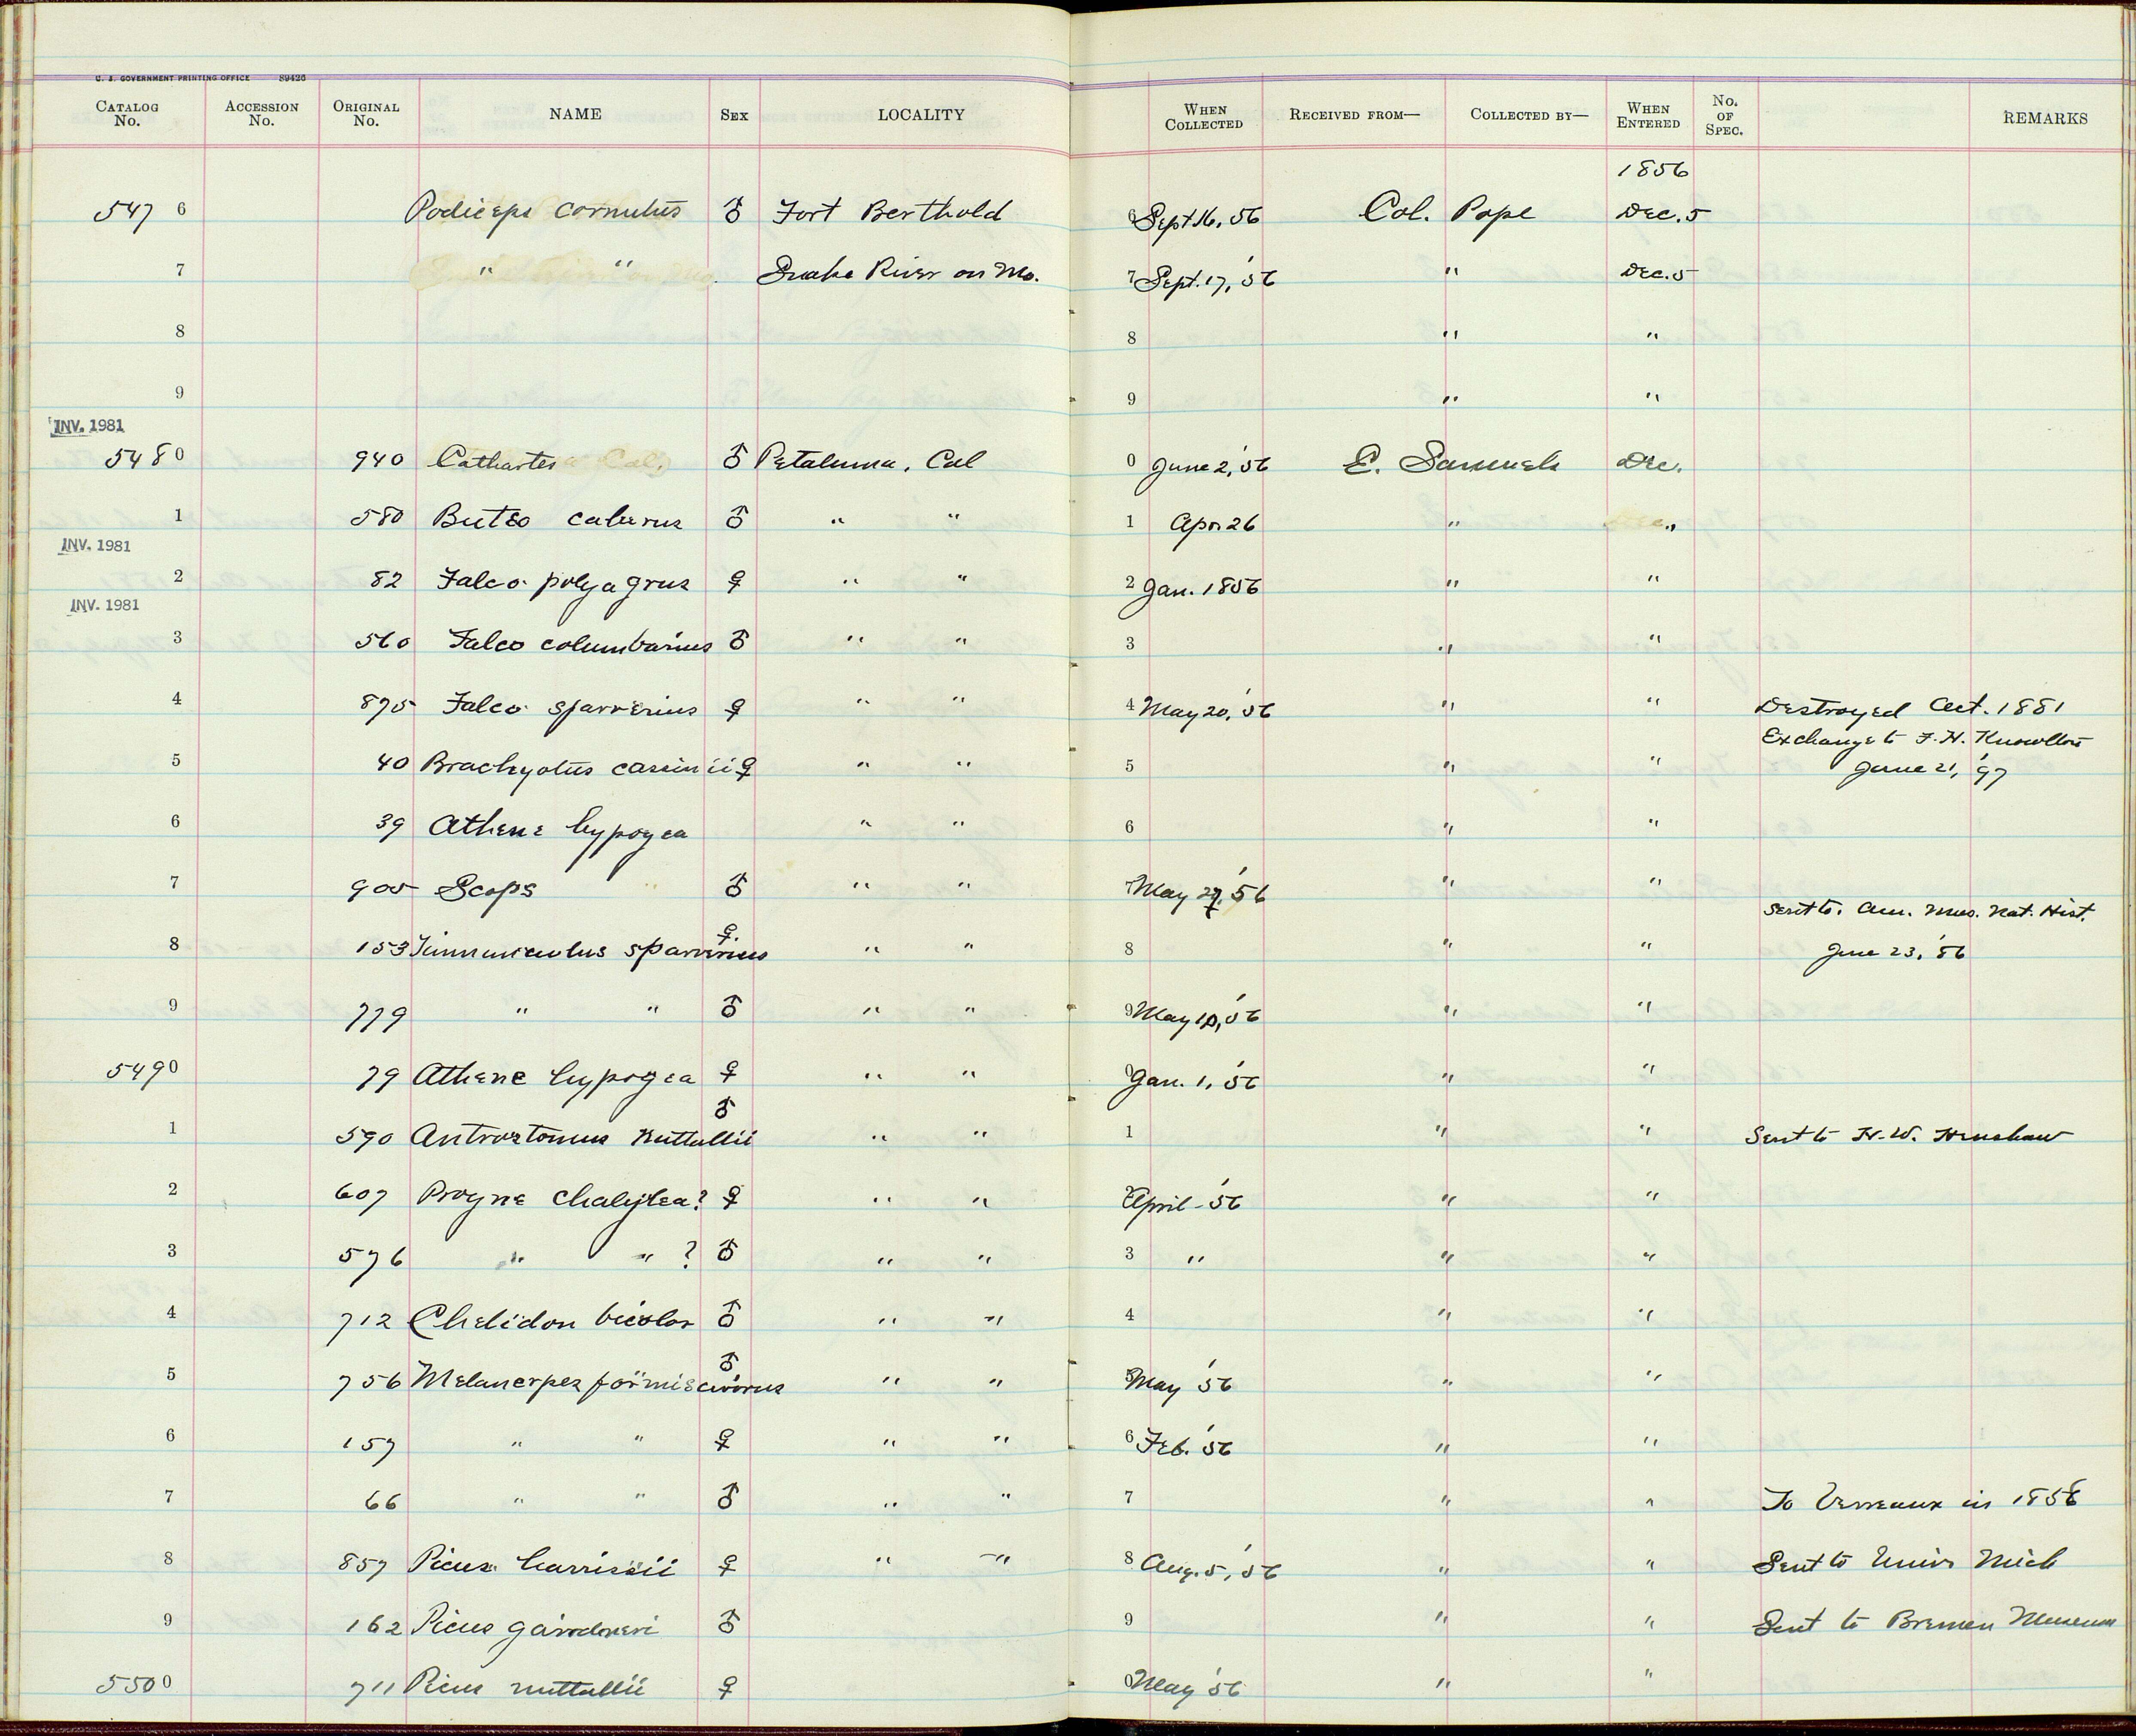 U. S. GOVERNMENT PRINTING OFFICE 89426
CATALOG No. ACCESSION No. ORIGINAL No. NAME SEX LOCALITY WHEN COLLECTED RECEIVED FROM— COLLECTED BY— WHEN ENTERED No. OF SPEC. REMARKS
1856
547 6 Podiceps cornutus ♂ Fort Berthold 6 Sept 16, 56 Col. Pope Dec. 5
7 " " Snake River on Mo. 7 Sept. 17, '56 " Dec. 5
8 8 " "
9 9 " "
INV. 1981
548 0 940 Cathartes ♂ Petaluma, Cal 0 June 2, '56 E. Samuels Dec.
1 580 Buteo calurus ♂ " " 1 Apr 26 " "
INV. 1981
2 82 Falco polyagrus ♀ " " 2 Jan. 1856 " "
INV. 1981
3 560 Falco columbarius ♂ " " 3 " "
4 875 Falco sparverius ♀ " " 4 May 20, '56 " " Destroyed Oct. 1881
Exchange to F. H. Knowlton
5 40 Brachyotus cassinii ♀ " " 5 " " June 21, '97
6 39 Athene hypogea " " 6 " "
7 905 Scops ♂ " " 7 May 27, '56 " "
Sent to Am. Mus. Nat. Hist.
8 153 Tinnunculus sparverius ♀ " " 8 " " June 23, '86
9 779 " " ♂ " " 9 May 10, '56 " "
549 0 79 Athene hypogea ♀ " " 0 Jan. 1, '56 " "
1 590 Antrostomus nuttallii ♂ " " 1 " " Sent to H. W. Henshaw
2 607 Progne chalybea? ♀ " " 2 April - '56 " "
3 576 " " ? ♂ " " 3 " " "
4 712 Chelidon bicolor ♂ " " 4 " "
5 756 Melanerpes formicivorus ♂ " " 5 May '56 " "
6 157 " " ♀ " " 6 Feb. '56 " "
7 66 " " ♂ " " 7 " " To Verreaux in
8 857 Picus harrissii ♀ " " 8 Aug. 5, '56 " " Sent to Univ Mich
9 162 Picus gairdneri ♂ 9 " " Sent to Bremen Museum
550 0 711 Picus nuttallii ♀ 0 May '56 " "